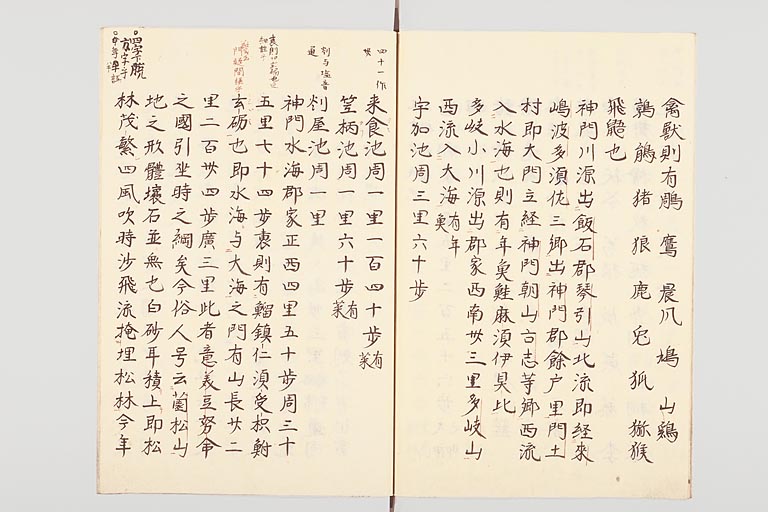 禽獣則有鵰 鷹 晨風 鳩 山鶏
鶉 鵤 猪 狼 鹿 兎 狐 猕猴
飛鼯也
神門川源出飯石郡琴引山北流即経来
嶋波多湏仇三郷出神門郡餘戸里門土
村即大門立経神門朝山古志等郷西流
入水海也則有年魚鮭麻湏伊具比
多岐小川源出郡家西南卅三里多岐山
西流入大海有年魚
宇加池周三里六十歩
来食池周一里一百四十歩有菜
笠柄池周一里六十歩有菜
刹屋池周一里
神門水海郡家正西四里五十歩周三十
五里七十四歩裏則有鯔鎮仁湏受枳鮒
玄砺也即水海与大海之門有山長廿二
里二百卅四歩廣三里此者意義豆努命
之國引坐時之綱矣今俗人号云薗松山
地之形體壌石並無也白砂耳積上即松
林茂繁四風吹時沙飛流掩埋松林今年
四十一作